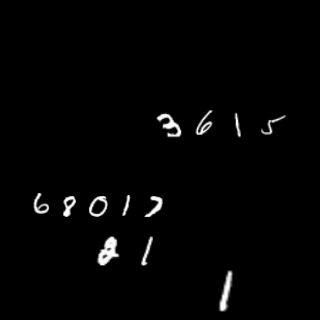 3615
68017
21
1